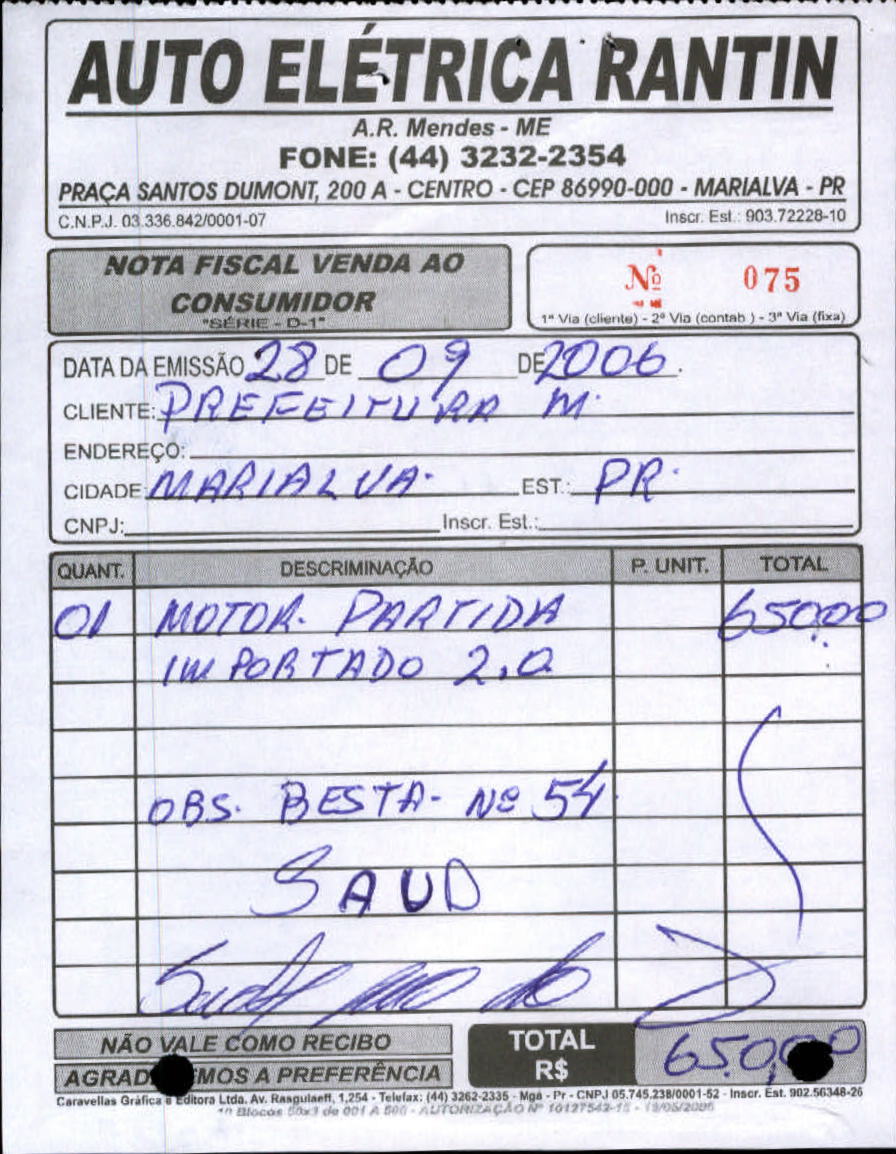 AUTO ELÉTRICA RANTIN
A.R. Mendes - ME
FONE: (44) 3232-2354
PRAÇA SANTOS DUMONT, 200 A - CENTRO - CEP 86990-000 - MARIALVA - PR
C.N.P.J. 03.336.842/0001-07 Inscr. Est.: 903.72228-10
NOTA FISCAL VENDA AO
CONSUMIDOR
"SÉRIE - D-1"
Nº 075
1ª Via (cliente) - 2ª Via (contab ) - 3ª Via (fixa)
DATA DA EMISSÃO 28 DE 09 DE 2006.
CLIENTE: PREFEITURA M.
ENDEREÇO:
CIDADE: MARIALVA. EST.: PR.
CNPJ: Inscr. Est.:
QUANT. DESCRIMINAÇÃO P. UNIT. TOTAL
01 MOTOR. PARTIDA 650,00
IMPORTADO 2.0
OBS. BESTA- Nº 54
SAUD
NÃO VALE COMO RECIBO
AGRAD MOS A PREFERÊNCIA
TOTAL
R$ 650,00
Caravellas Gráfica e Editora Ltda. Av. Rasgulaeff, 1,254 - Telefax: (44) 3262-2335 - Mgá - Pr - CNPJ 05.745.238/0001-52 - Inscr. Est. 902.56348-26
Blocos 50x3 de 001 A 500 - AUTORIZAÇÃO Nº